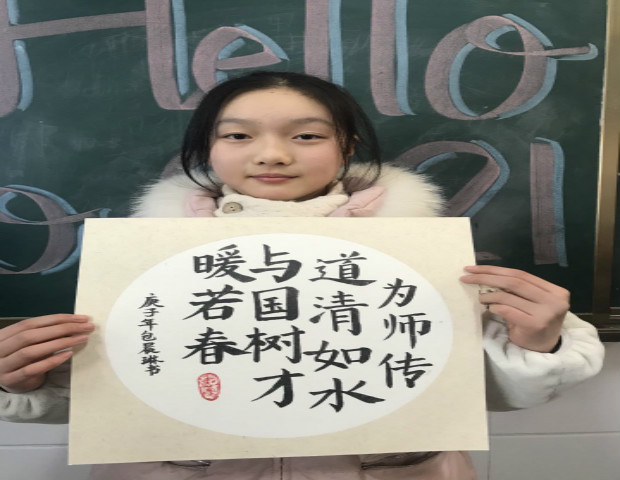 Hello
21
为师传
道清如水
与国树才
暖若春
庚子年包晨琳书